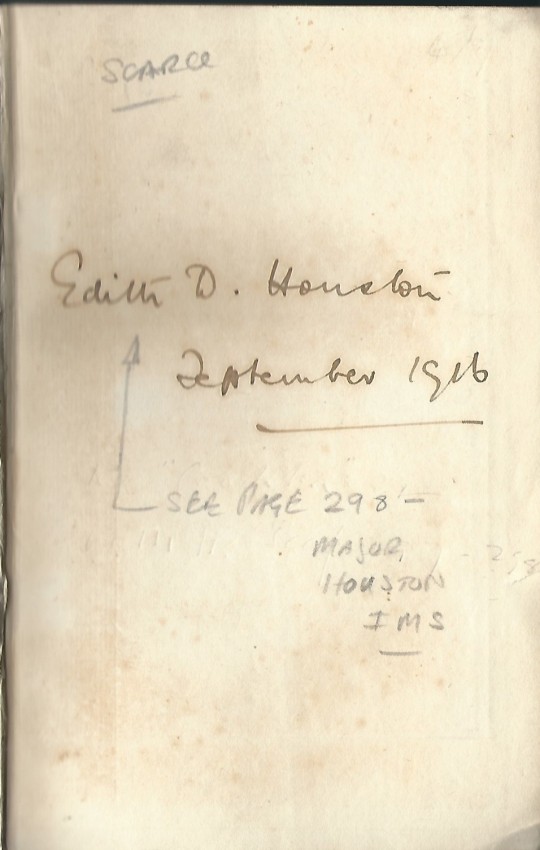 SCARCE
Edith D. Houston
September 1916
SEE PAGE 298 —
MAJOR
HOUSTON
IMS